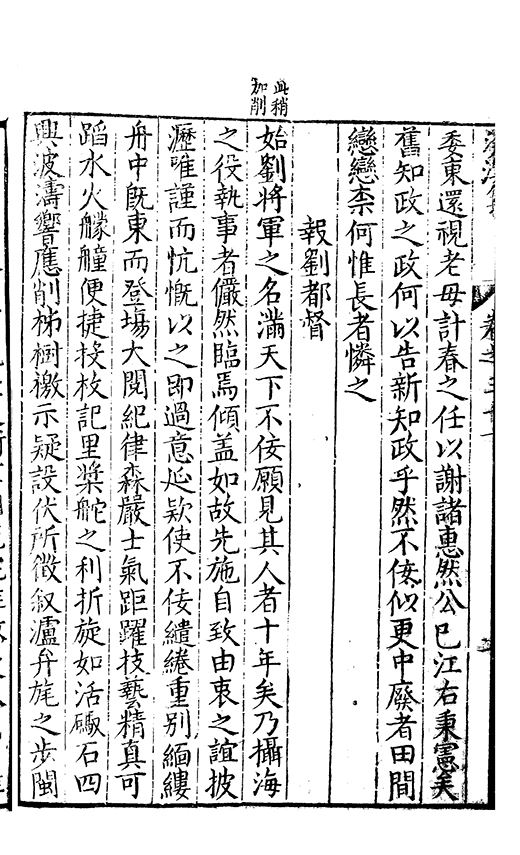 委東還視老母計春之任以謝諸惠然公已江右秉憲矣
舊知政之政何以告新知政乎然不佞似更中廢者田間
戀戀柰何惟長者憐之
報劉都督
此稍
加削
始劉將軍之名滿天下不佞願見其人者十年矣乃攝海
之役執事者儼然臨焉傾盖如故先施自致由衷之誼披
瀝唯謹而忼慨以之即過意延欵使不佞繾綣重别緬縷
舟中旣東而登塲大閱紀律森嚴士氣距躍技藝精真可
蹈水火艨艟便捷投枚記里槳舵之利折旋如活礮石四
興波濤響應削柹樹襒示疑設伏所徵叙瀘弁旄之步閩